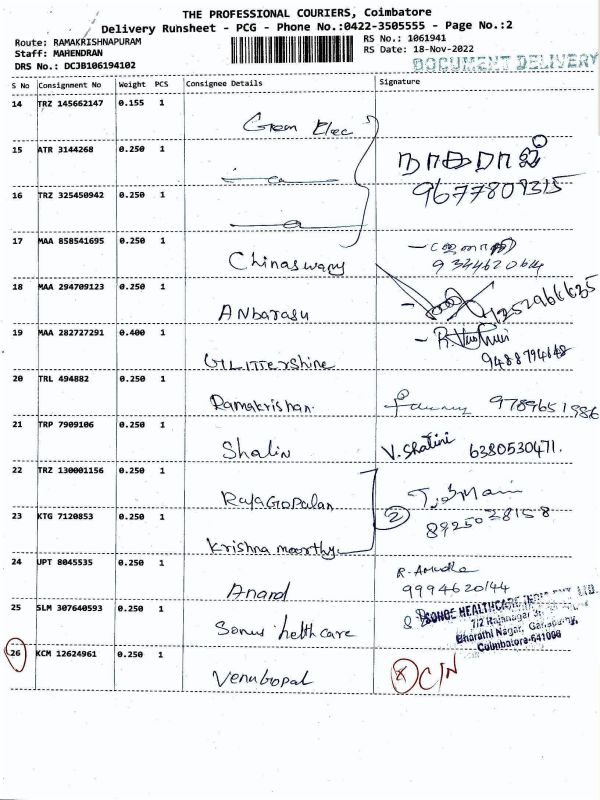 THE PROFESSIONAL COURIERS, Coimbatore
Delivery Runsheet - PCG - Phone No.:0422-3505555 - Page No.:2
Route: RAMAKRISHNAPURAM
Staff: MAHENDRAN
DRS No.: DCJB106194102
RS No.: 1061941
RS Date: 18-Nov-2022
DOCUMENT DELIVERY
S No Consignment No Weight PCS Consignee Details Signature
14 TRZ 145662147 0.155 1 Grom Elec
15 ATR 3144268 0.250 1 நாகராஜ்
9677809315
16 TRZ 325450942 0.250 1
17 MAA 858541695 0.250 1 Chinaswamy
9344620614
18 MAA 294709123 0.250 1 ANbarasu
19 MAA 282727291 0.400 1 GLITTershine 9488794848
20 TRL 494882 0.250 1 Ramakrishan. 9789651986
21 TRP 7909106 0.250 1 Shalin V. Shalini 6380530471.
22 TRZ 130001156 0.250 1 RajaGopalan
2
8925038158
23 KTG 7120853 0.250 1 Krishna moorthy
24 UPT 8045535 0.250 1 Anand
9994620144
25 SLM 307640593 0.250 1 Sonus helthcare
HEALTHCARE INDIA PVT. LTD.
7/2 Rajanagar
Bharathi Nagar,
Coimbatore-641006
26 KCM 12624961 0.250 1 VenuGopal C/N